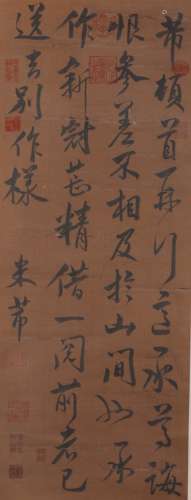 芾頓首再行適承芳誨
恨參差不相及於山間如承
作新冠甚精借一閱前者已
送去別作樣 米芾